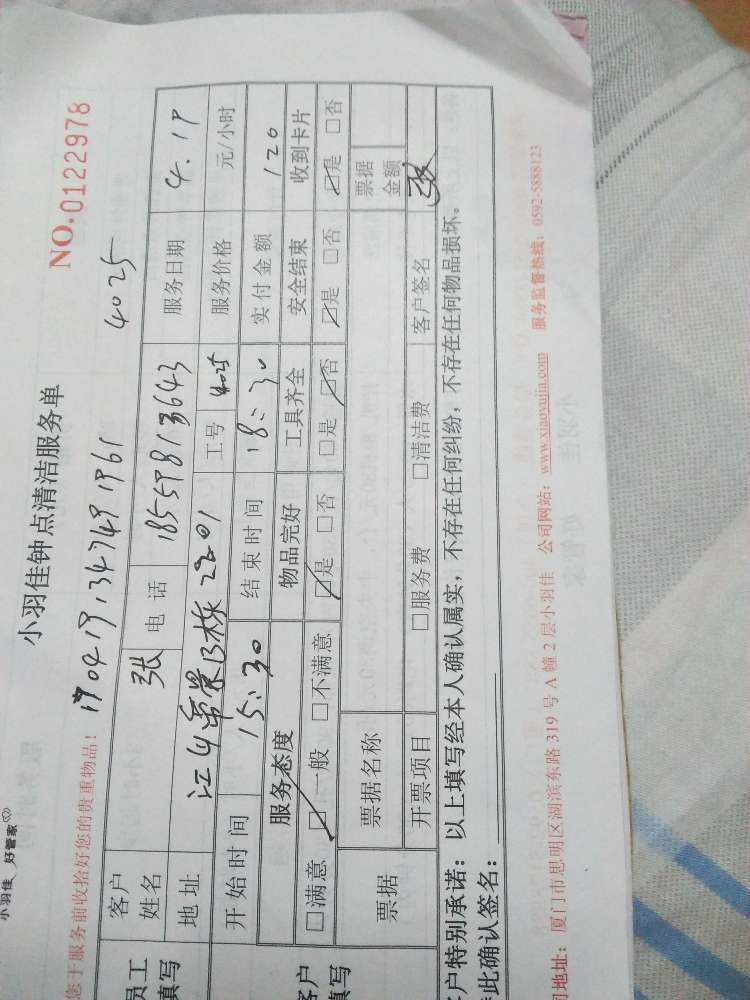 小羽佳 好管家
小羽佳钟点清洁服务单
NO.0122978
您于服务前收拾好您的贵重物品! 1704191347491961 4025
员工
填写
客户姓名 张 电话 18559813643 服务日期 4.19
地址 江山帝景B栋2201 工号 4025 服务价格 元/小时
开始时间 15:30 结束时间 18:30 实付金额 120
客户
填写
服务态度 物品完好 工具齐全 安全结束 收到卡片
□满意 □一般 □不满意 □是 □否 □是 □否 □是 □否 □是 □否
票据 票据名称 票据金额
开票项目 □服务费 □清洁费 客户签名
客户特别承诺：以上填写经本人确认属实，不存在任何纠纷，不存在任何物品损坏。
此确认签名：
司地址：厦门市思明区湖滨东路 319 号 A 幢 2 层小羽佳 公司网站：www.xiaoyujia.com 服务监督热线：0592-5888123